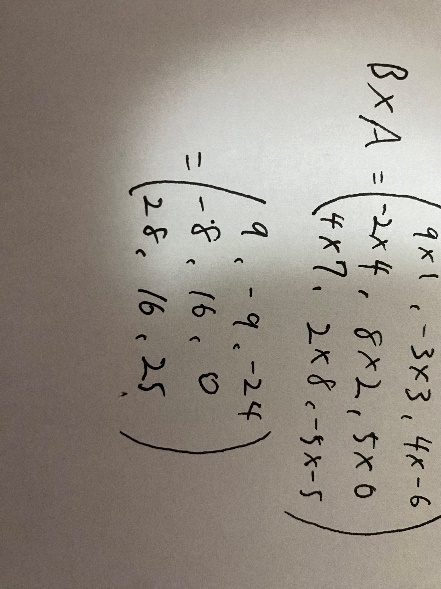 9×1, -3×3, 4×-6
B×A = -2×4, 8×2, 5×0
4×7, 2×8, -5×-5
9, -9, -24
= -8, 16, 0
28, 16, 25